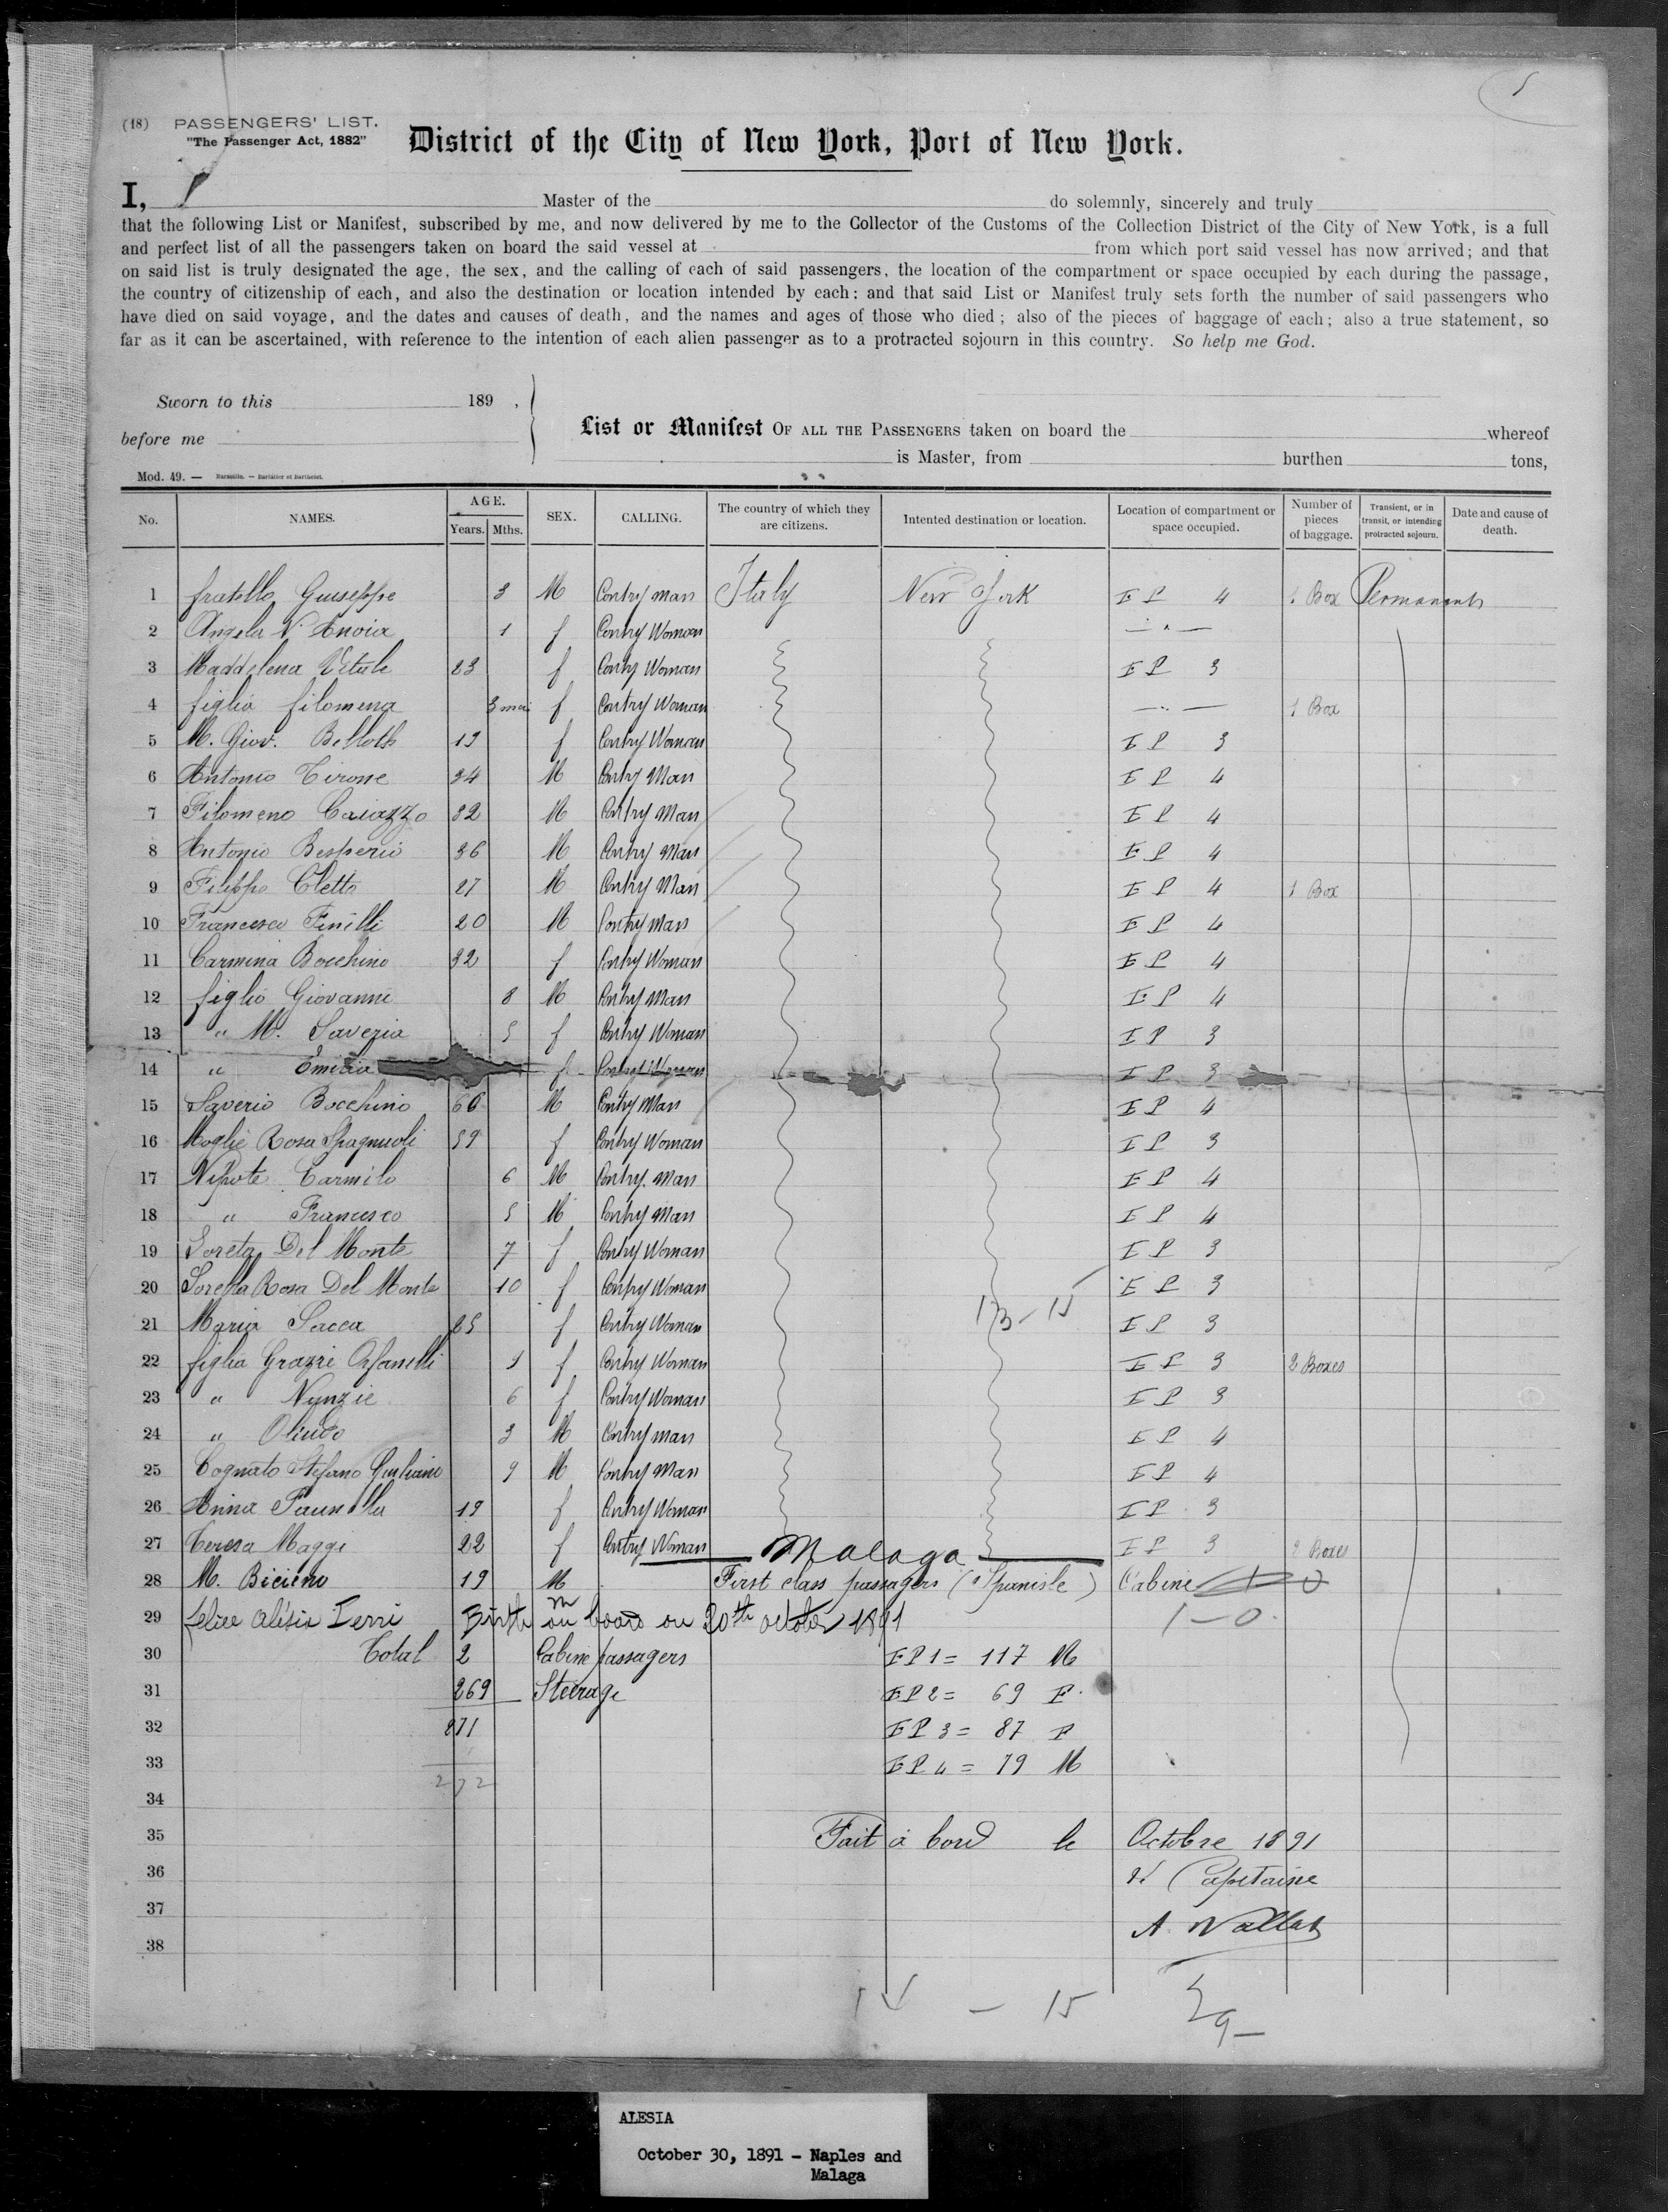 5
(18) PASSENGERS' LIST.
"The Passenger Act, 1882"
District of the City of New York, Port of New York.
I, Master of the do solemnly, sincerely and truly
that the following List or Manifest, subscribed by me, and now delivered by me to the Collector of the Customs of the Collection District of the City of New York, is a full
and perfect list of all the passengers taken on board the said vessel at from which port said vessel has now arrived; and that
on said list is truly designated the age, the sex, and the calling of each of said passengers, the location of the compartment or space occupied by each during the passage,
the country of citizenship of each, and also the destination or location intended by each: and that said List or Manifest truly sets forth the number of said passengers who
have died on said voyage, and the dates and causes of death, and the names and ages of those who died; also of the pieces of baggage of each; also a true statement, so
far as it can be ascertained, with reference to the intention of each alien passenger as to a protracted sojourn in this country. So help me God.
Sworn to this 189 ,
before me
List or Manifest OF ALL THE PASSENGERS taken on board the whereof
is Master, from burthen tons,
Mod. 49. — Marseille. — Barlatier et Barthelet.
No. NAMES. AGE. Years. Mths. SEX. CALLING. The country of which they are citizens. Intented destination or location. Location of compartment or space occupied. Number of pieces of baggage. Transient, or in transit, or intending protracted sojourn. Date and cause of death.
1 fratello Guiseppe 3 M Contry man Italy New York E P 4 1 Box Permanents
2 Angela N. Anoia 1 f Contry Woman — " —
3 Maddelena Vitale 23 f Contry Woman E P 3
4 figlia filomena 3 f Contry Woman — " — 1 Box
5 M. Giov. Bellotti 19 f Contry Woman E P 3
6 Antonio Tirone 34 M Contry Man E P 4
7 Filomeno Caiazzo 32 M Contry Man E P 4
8 Antonio Besperio 36 M Contry Man E P 4
9 Filippo Cletto 27 M Contry Man E P 4 1 Box
10 Francesco Finilli 20 M Contry man E P 4
11 Carmina Bocchino 32 f Contry Woman E P 4
12 figlio Giovanni 8 M Contry Man E P 4
13 " M. Saveria 5 f Contry Woman E P 3
14 " Emilia f Contry Woman E P 3
15 Saverio Bocchino 66 M Contry Man E P 4
16 Moglie Rosa Spagnuoli 59 f Contry Woman E P 3
17 Nipote Carmilo 6 M Contry man E P 4
18 " Francesco 5 M Contry Man E P 4
19 Loreta Del Monte 7 f Contry Woman E P 3
20 Sorella Rosa Del Monte 10 f Contry Woman E P 3
13 - 15
21 Maria Sacca 25 f Contry Woman E P 3
22 figlia Grazie Orfanelli 9 f Contry Woman E P 3 2 Boxes
23 " Nunzie 6 f Contry Woman E P 3
24 " Olindo 3 M Contry man E P 4
25 Cognato Stefano Giuliano 9 M Contry Man E P 4
26 Anna Paunella 19 f Contry Woman E P 3
27 Teresa Maggi 22 f Contry Woman Malaga E P 3 2 Boxes
28 M. Bicieno 19 M First class passagers (Spanish) Cabine
29 felice Alésia Ierri M Birth on board on 20th october 1891 1—0
30 Total 2 Cabine passagers E P 1 = 117 M
31 269 Steerage E P 2 = 69 F
32 271 E P 3 = 87 F
33 272 E P 4 = 79 M
34
35 Fait à bord le Octobre 1891
36 Capitaine
37
38
— 15 29 —
ALESIA
October 30, 1891 - Naples and
Malaga